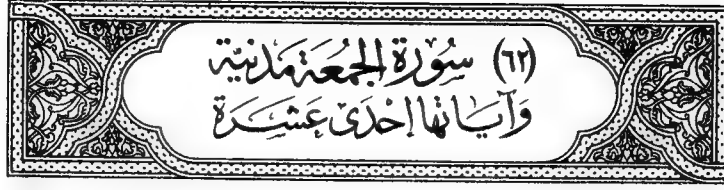 (٦٢) سُورَة الجُمُعَة مَدَنيّة
وَآيَاتهَا إحْدَىٰ عَشَرَة